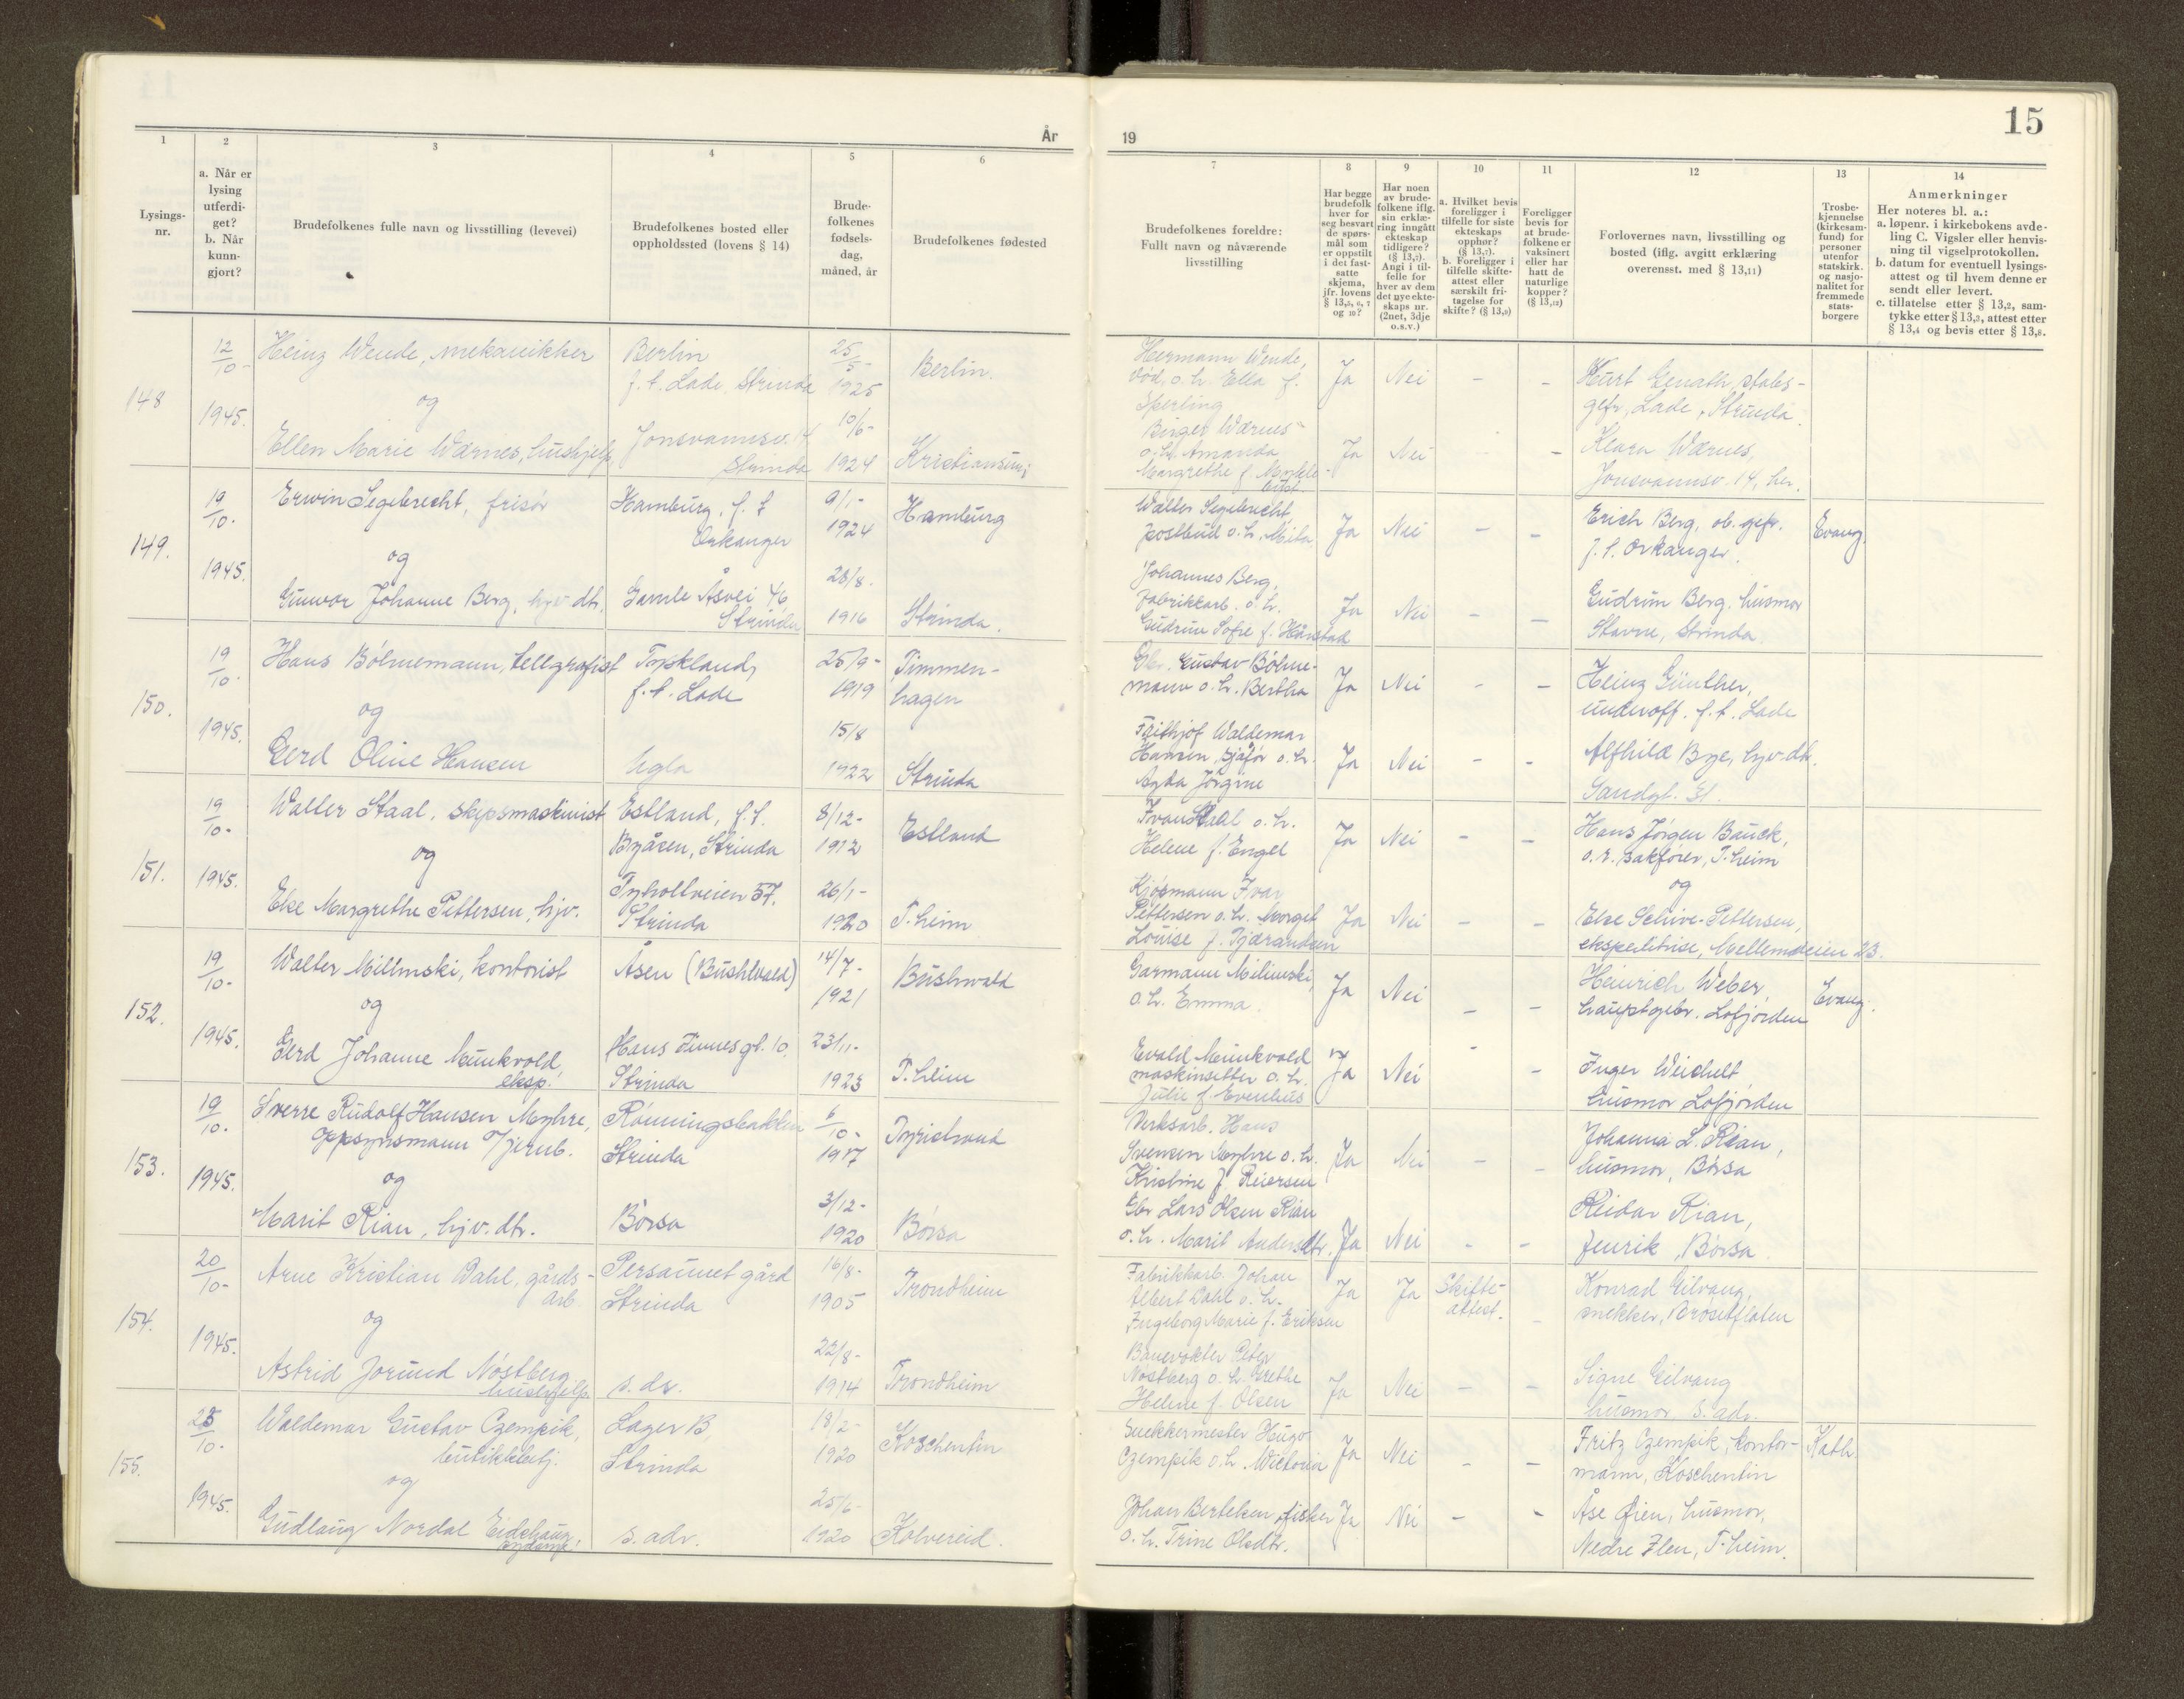 15
År
19
1
2
3
4
5
6
7
8
9
10
11
12
13
14
Lysings-
nr.
a. Når er
lysing
utferdi-
get?
b. Når
kunn-
gjort?
Brudefolkenes fulle navn og livsstilling (levevei)
Brudefolkenes bosted eller
oppholdssted (lovens § 14)
Brude-
folkenes
fødsels-
dag,
måned, år
Brudefolkenes fødested
Brudefolkenes foreldre:
Fullt navn og nåværende
livsstilling
Har begge
brudefolk
hver for
seg besvart
de spørs-
mål som
er oppstilt
i det fast-
satte
skjema,
jfr. lovens
§ 13,5, 6, 7
og 10?
Har noen
av brude-
folkene iflg.
sin erklæ-
ring inngått
ekteskap
tidligere?
(§ 13,7).
Angi i til-
felle for
hver av dem
det nye ekte-
skaps nr.
(2net, 3dje
o.s.v.)
a. Hvilket bevis
foreligger i
tilfelle for siste
ekteskaps
opphør?
(§ 13,7).
b. Foreligger i
tilfelle skifte-
attest eller
særskilt fri-
tagelse for
skifte? (§ 13,9)
Foreligger
bevis for
at brude-
folkene er
vaksinert
eller har
hatt de
naturlige
kopper?
(§ 13,12)
Forlovernes navn, livsstilling og
bosted (iflg. avgitt erklæring
overensst. med § 13,11)
Trosbe-
kjennelse
(kirkesam-
fund) for
personer
utenfor
statskirk.
og nasjo-
nalitet for
fremmede
stats-
borgere
Anmerkninger
Her noteres bl. a.:
a. løpenr. i kirkebokens avde-
ling C. Vigsler eller henvis-
ning til vigselprotokollen.
b. datum for eventuell lysings-
attest og til hvem denne er
sendt eller levert.
c. tillatelse etter § 13,2, sam-
tykke etter § 13,3, attest etter
§ 13,4 og bevis etter § 13,8.
148
12/10-
1945.
Heinz Wende, mekanikker
og
Ellen Marie Wærnes, hushjelp
Berlin
f.t. Lade, Strinda
Jonsvannsv. 14
Strinda
25/5-
1925
10/6-
1924
Berlin.
Kristiansund
Hermann Wende,
død, o.h. Ella f.
Sperling
Birger Wærnes
o.h. Amanda
Margrethe f.
Ja Nei - -
Ja Nei -
Kurt Genath, stabs-
gefr, Lade, Strinda.
Klara Wærnes,
Jonsvannsv. 14, her.
149.
19/10.
1945.
Erwin Segebrecht, frisør
og
Gunvor Johanne Berg, hjv. dtr.
Hamburg, f.t
Orkanger
Gamle Åsvei 46
Strinda
9/1-
1924
28/8.
1916
Hamburg
Strinda.
Walter Segebrecht
postbud o.h. Mita
Johannes Berg,
Fabrikkarb. o.h.
Gudrun Sofie f. Hårstad
Ja Nei - -
Ja Nei - -
Erich Berg, ob. gefr.
f.t. Orkanger.
Gudrun Berg, husmor
Stavne, Strinda.
Evang.
150.
19/10.
1945.
Hans Bölmemann, tellgrafist
og
Gerd Oline Hansen
Tyskland,
f.t. Lade
Ugla
25/9-
1919
15/8
1922
Timmen-
hagen
Strinda
Gbr. Gustav Bölme-
mann o.h. Bertha
Frithjof Waldemar
Hansen, sjåfør o.h.
Agda Jørgine
Ja Nei - -
Ja Nei - -
Heinz Günther,
underoff. f.t. Lade
Alfhild Bye, hjv. dtr.
Sandgt. 31.
151.
19/10-
1945.
Walter Staal, skipsmaskinist
og
Else Margrethe Pettersen, hjv.
Estland, f.t.
Byåsen, Strinda
Tyholtveien 57.
Strinda
8/12-
1912
26/1-
1920
Estland
T.heim
Ivan Staal o.h.
Helene f. Engel
Kjøpmann Ivar
Pettersen o.h. Margit
Louise f. Tjærandsen
Ja Nei - -
Ja Nei - -
Hans Jörgen Bauck,
o.r. sakfører, T.heim
og
Else Schive-Pettersen,
ekspeditrise, Mellemveien 23.
152.
19/10-
1945.
Walter Millinski, kontorist
og
Gerd Johanne Munkvold,
eksp.
Åsen (Bushlvald)
Hans Finnes gt. 10.
Strinda
14/7-
1921
23/11-
1923
Bushwald
T.heim
Garmann Milinski,
o.h. Emma.
Evald Munkvold
maskinsetter o.h.
Julie f. Evenhus
Ja Nei - -
Ja Nei - -
Heinrich Weber,
hauptgebr. Lofjorden
Inger Weichelt
husmor Lofjorden
Evang.
153.
19/10.
1945.
Sverre Rudolf Hansen Myhre,
oppsynsmann v/jernb.
og
Marit Rian, hjv. dtr.
Rønningsbakken
Strinda
Børsa
6/10-
1917
3/12-
1920
Tyristrand
Børsa
Verksarb. Hans
Svensen Myhre o.h.
Kristine f. Reiersen
Gbr Lars Olsen Rian
o.h. Marit Andersdtr.
Ja Nei - -
Ja Nei - -
Johanna L. Rian,
husmor, Børsa
Reidar Rian,
Jenrik, Børsa.
154.
20/10-
1945.
Arne Kristian Dahl, gårds-
arb
og
Astrid Jorund Nøstberg
hushjelp
Persaunet gård
Strinda
s. ds.
16/8-
1905
22/8-
1914
Trondheim
Trondheim
Fabrikkarb. Johan
Albert Dahl o.h.
Ingeborg Marie f. Eriksen
Banevokter Peter
Nøstberg o.h. Grethe
Helene f. Olsen
Ja Ja Skifte-
attest. -
Ja Nei - -
Konrad Gilvang,
snekker, Brøsetflaten
Signe Gilvang
husmor s. adr.
155.
25/10.
1945.
Waldemar Gustav Czempik,
butikkbetj.
og
Gudlaug Nordal Eidshaug,
Lager B,
Strinda
s. adr.
18/2-
1920
25/6-
1920
Koschentin
Kolvereid.
Snekkermester Hugo
Czempik o.h. Wictoria
Johan Bertelsen, fisker
o.h. Trine Olsdtr.
Ja Nei - -
Ja Nei - -
Fritz Czempik, kontor-
mann, Koschentin
Åse Øien, husmor,
Nedre Ilen, T.heim.
Kath.